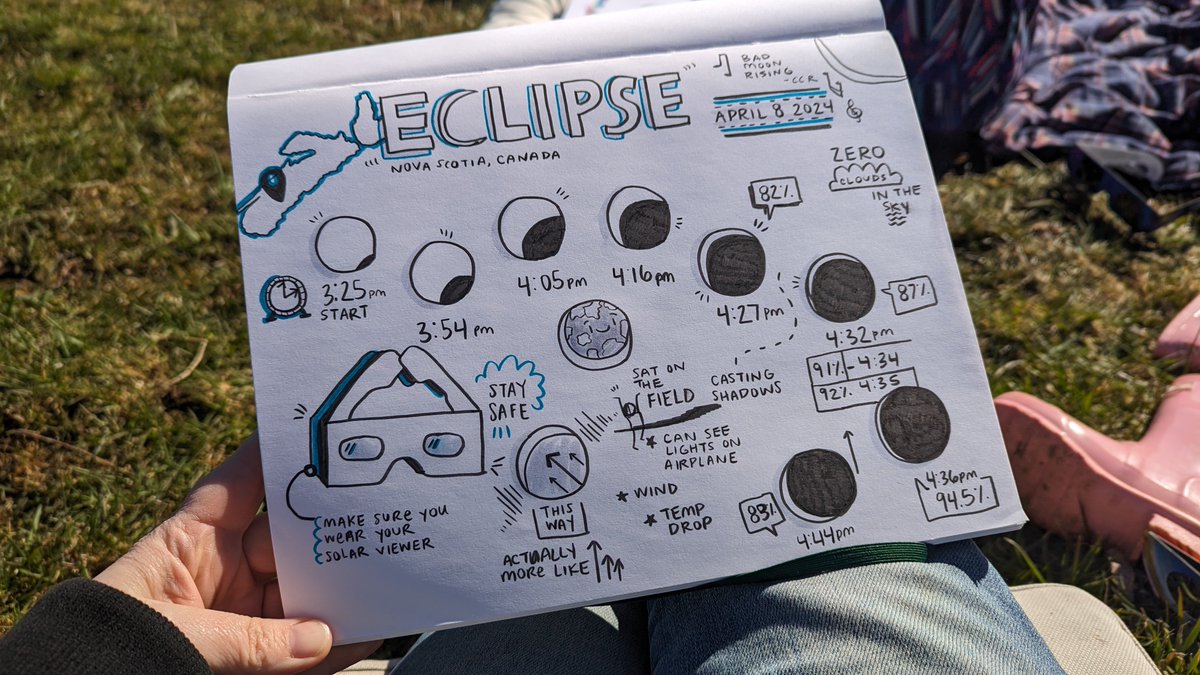 ECLIPSE
NOVA SCOTIA, CANADA
BAD
MOON
RISING
-CCR
APRIL 8 2024
ZERO
CLOUDS
IN THE
SKY
3:25pm
START
3:54pm
4:05pm
4:16pm
82%
4:27pm
87%
4:32pm
91% - 4:34
92% 4:35
4:36pm
94.5%
83%
4:44pm
STAY
SAFE
MAKE SURE YOU
WEAR YOUR
SOLAR VIEWER
THIS
WAY
ACTUALLY
MORE LIKE
SAT ON
THE
FIELD
CASTING
SHADOWS
CAN SEE
LIGHTS ON
AIRPLANE
WIND
TEMP
DROP